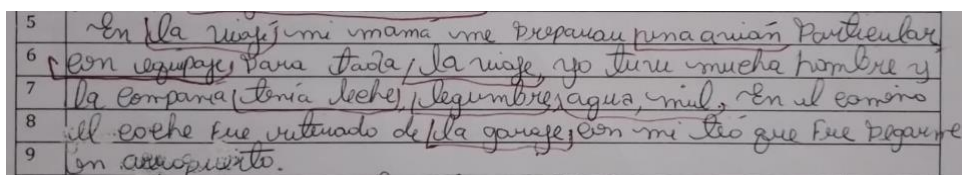 5 En la viaje, mi mamá me preparau una avión Particular,
6 con equipaje, Para toda, la viaje, yo ture mucha hombre y
7 la compania, tenía leche, legumbre, agua, miel, En el comino
8 el coche Fue retirado de la garage, con mi tió que Fue pegarme
9 en